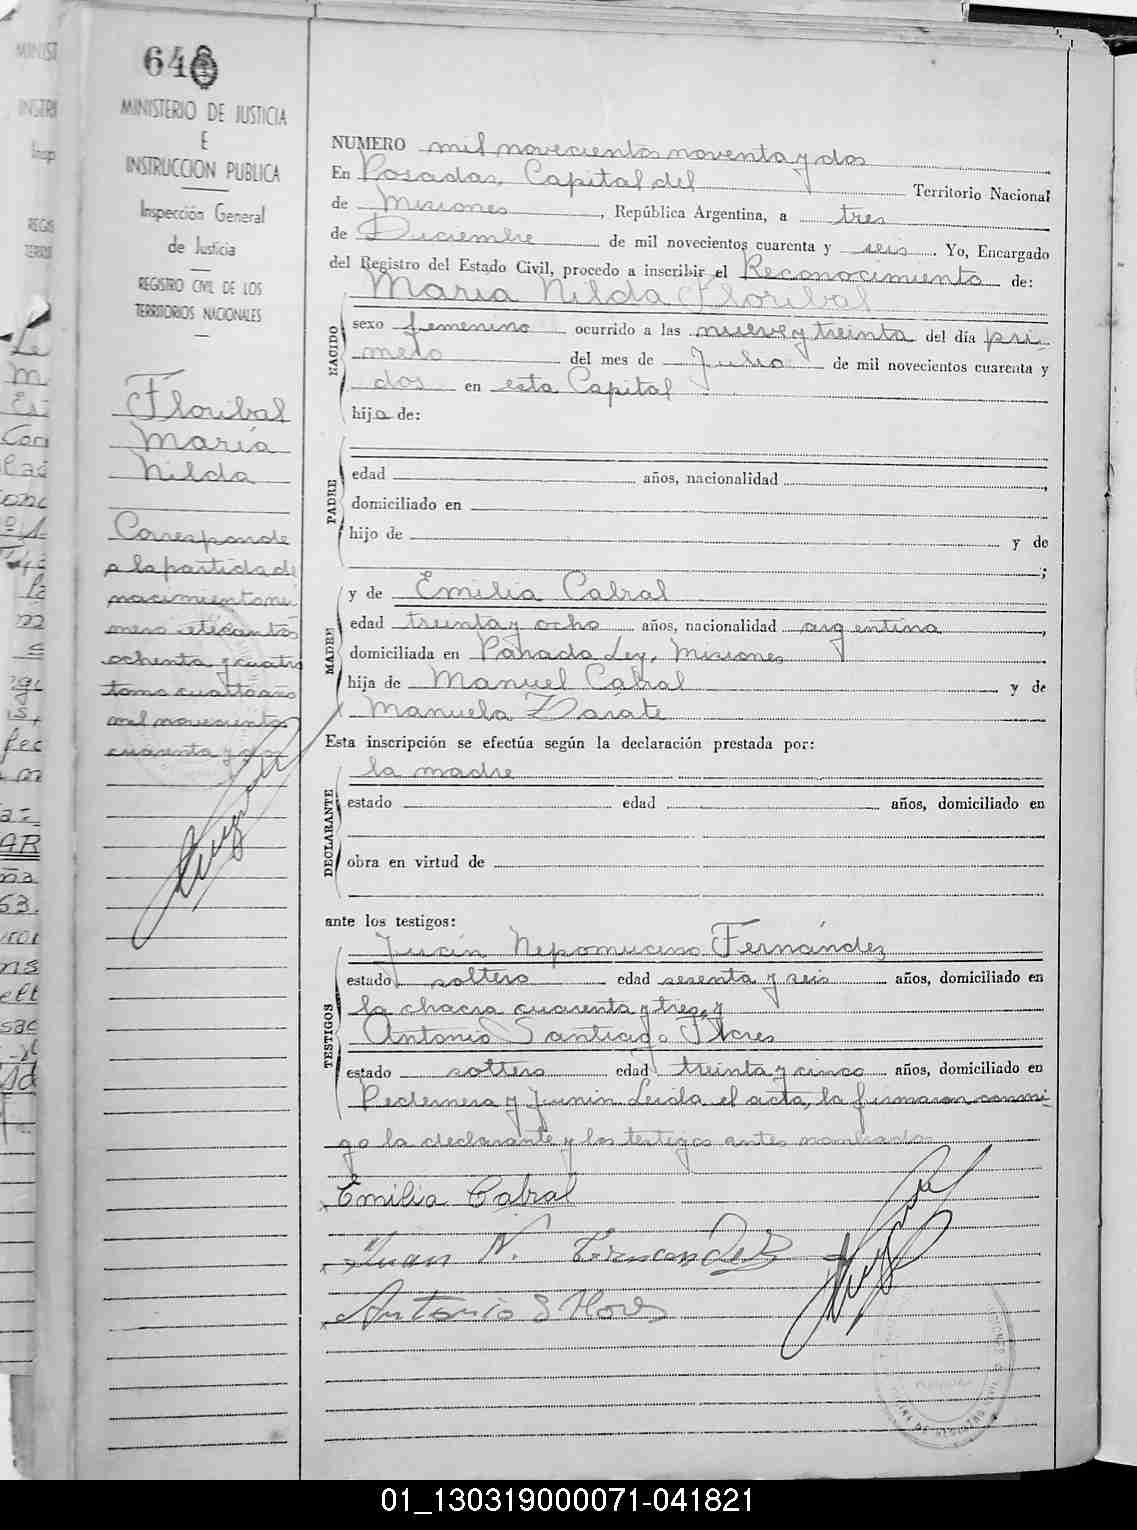 640
MINISTERIO DE JUSTICIA
E
INSTRUCCION PUBLICA
Inspección General
de Justicia
REGISTRO CIVIL DE LOS
TERRITORIOS NACIONALES
Floribal
María
Nilda
Corresponde
a la partida de
nacimiento nú
mero setecientos
ochenta y cuatro
tomo cuarto año
mil novecientos
cuarenta y dos
NUMERO mil novecientos noventa y dos
En Posadas, Capital del Territorio Nacional
de Misiones, República Argentina, a tres
de Diciembre de mil novecientos cuarenta y seis. Yo, Encargado
del Registro del Estado Civil, procedo a inscribir el Reconocimiento de:
María Nilda Floribal
NACIDO
sexo femenino ocurrido a las nueve y treinta del día pri-
mero del mes de Julio de mil novecientos cuarenta y
dos en esta Capital
hija de:
PADRE
edad años, nacionalidad
domiciliado en
hijo de y de
;
MADRE
y de Emilia Cabral
edad treinta y ocho años, nacionalidad argentina,
domiciliada en Parada Ley, Misiones
hija de Manuel Cabral y de
Manuela Zarate
Esta inscripción se efectúa según la declaración prestada por:
DECLARANTE
la madre
estado edad años, domiciliado en
obra en virtud de
ante los testigos:
TESTIGOS
Juan Nepomuceno Fernández
estado soltero edad sesenta y seis años, domiciliado en
la chacra cuarenta y tres, y
Antonio Santiago Flores
estado soltero edad treinta y cinco años, domiciliado en
Pedernera y Junin Leida el acta, la firmaron conmi-
go la declarante y los testigos antes nombrados
Emilia Cabral
Juan N. Fernandez
Antonio S Flores
01_130319000071-041821